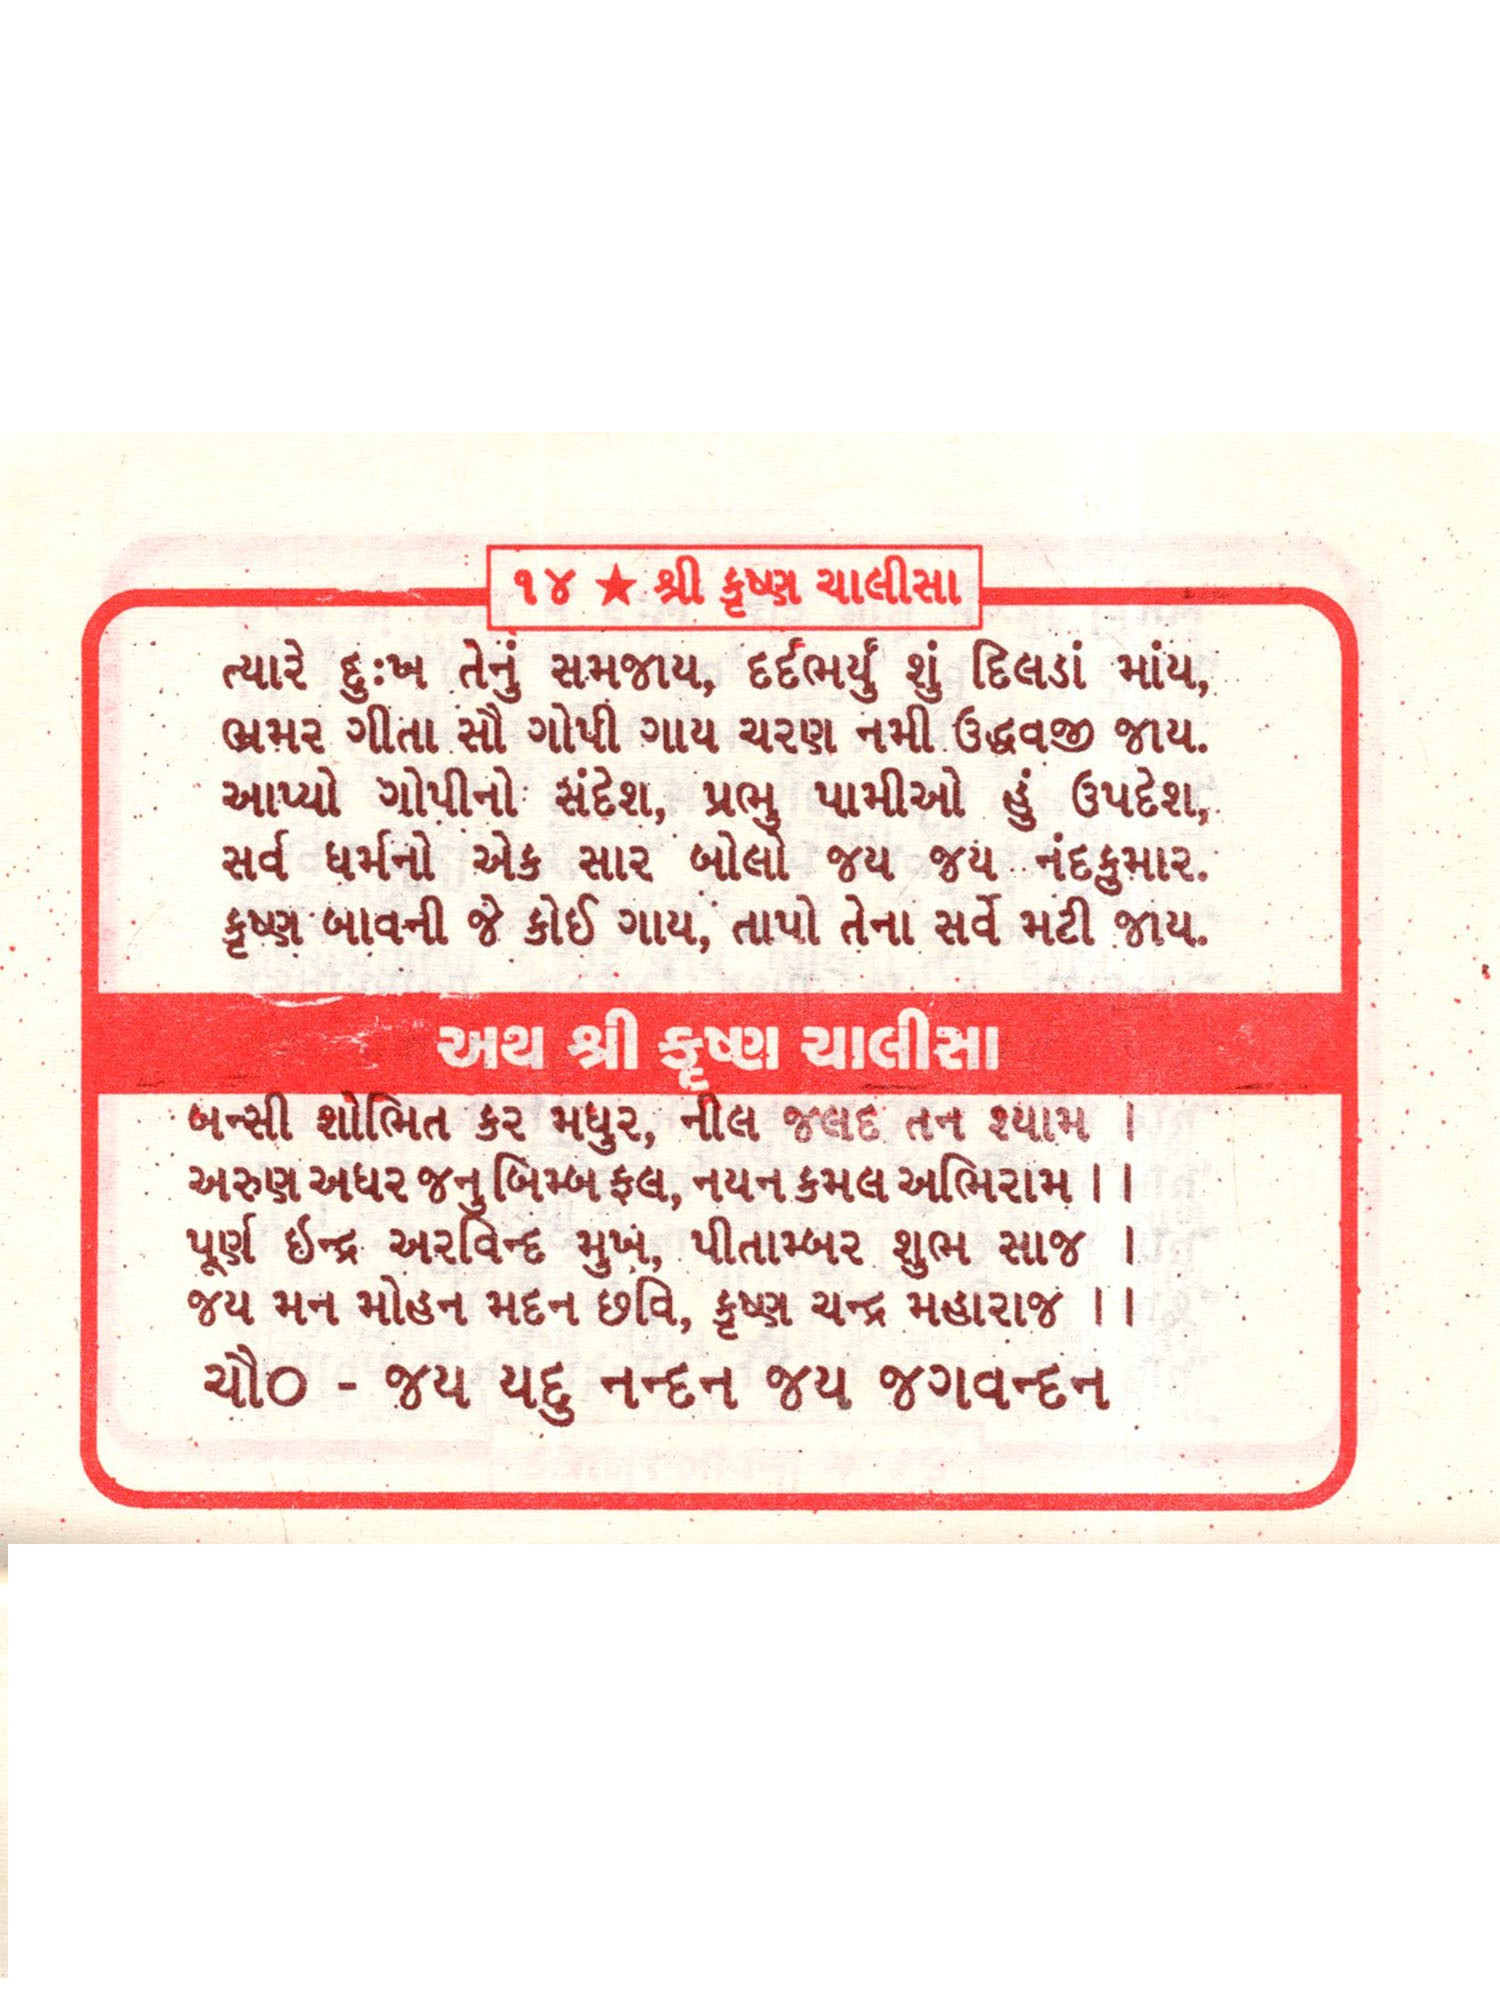 ૧૪ ★ શ્રી કૃષ્ણ ચાલીસા
ત્યારે દુઃખ તેનું સમજાય, દર્દભર્યું શું દિલડાં માંય,
ભ્રમર ગીતા સૌ ગોપી ગાય ચરણ નમી ઉદ્ધવજી જાય.
આપ્યો ગોપીનો સંદેશ, પ્રભુ પામીઓ હું ઉપદેશ,
સર્વ ધર્મનો એક સાર બોલો જય જય નંદકુમાર.
કૃષ્ણ બાવની જે કોઈ ગાય, તાપો તેના સર્વે મટી જાય.
અથ શ્રી કૃષ્ણ ચાલીસા
બન્સી શોભિત કર મધુર, નીલ જલદ તન શ્યામ ।
અરુણ અધર જનુ બિમ્બ ફલ, નયન કમલ અભિરામ ।।
પૂર્ણ ઇન્દ્ર અરવિન્દ મુખ, પીતામ્બર શુભ સાજ ।
જય મન મોહન મદન છવિ, કૃષ્ણ ચન્દ્ર મહારાજ ।।
ચૌ૦ - જય યદુ નન્દન જય જગવન્દન